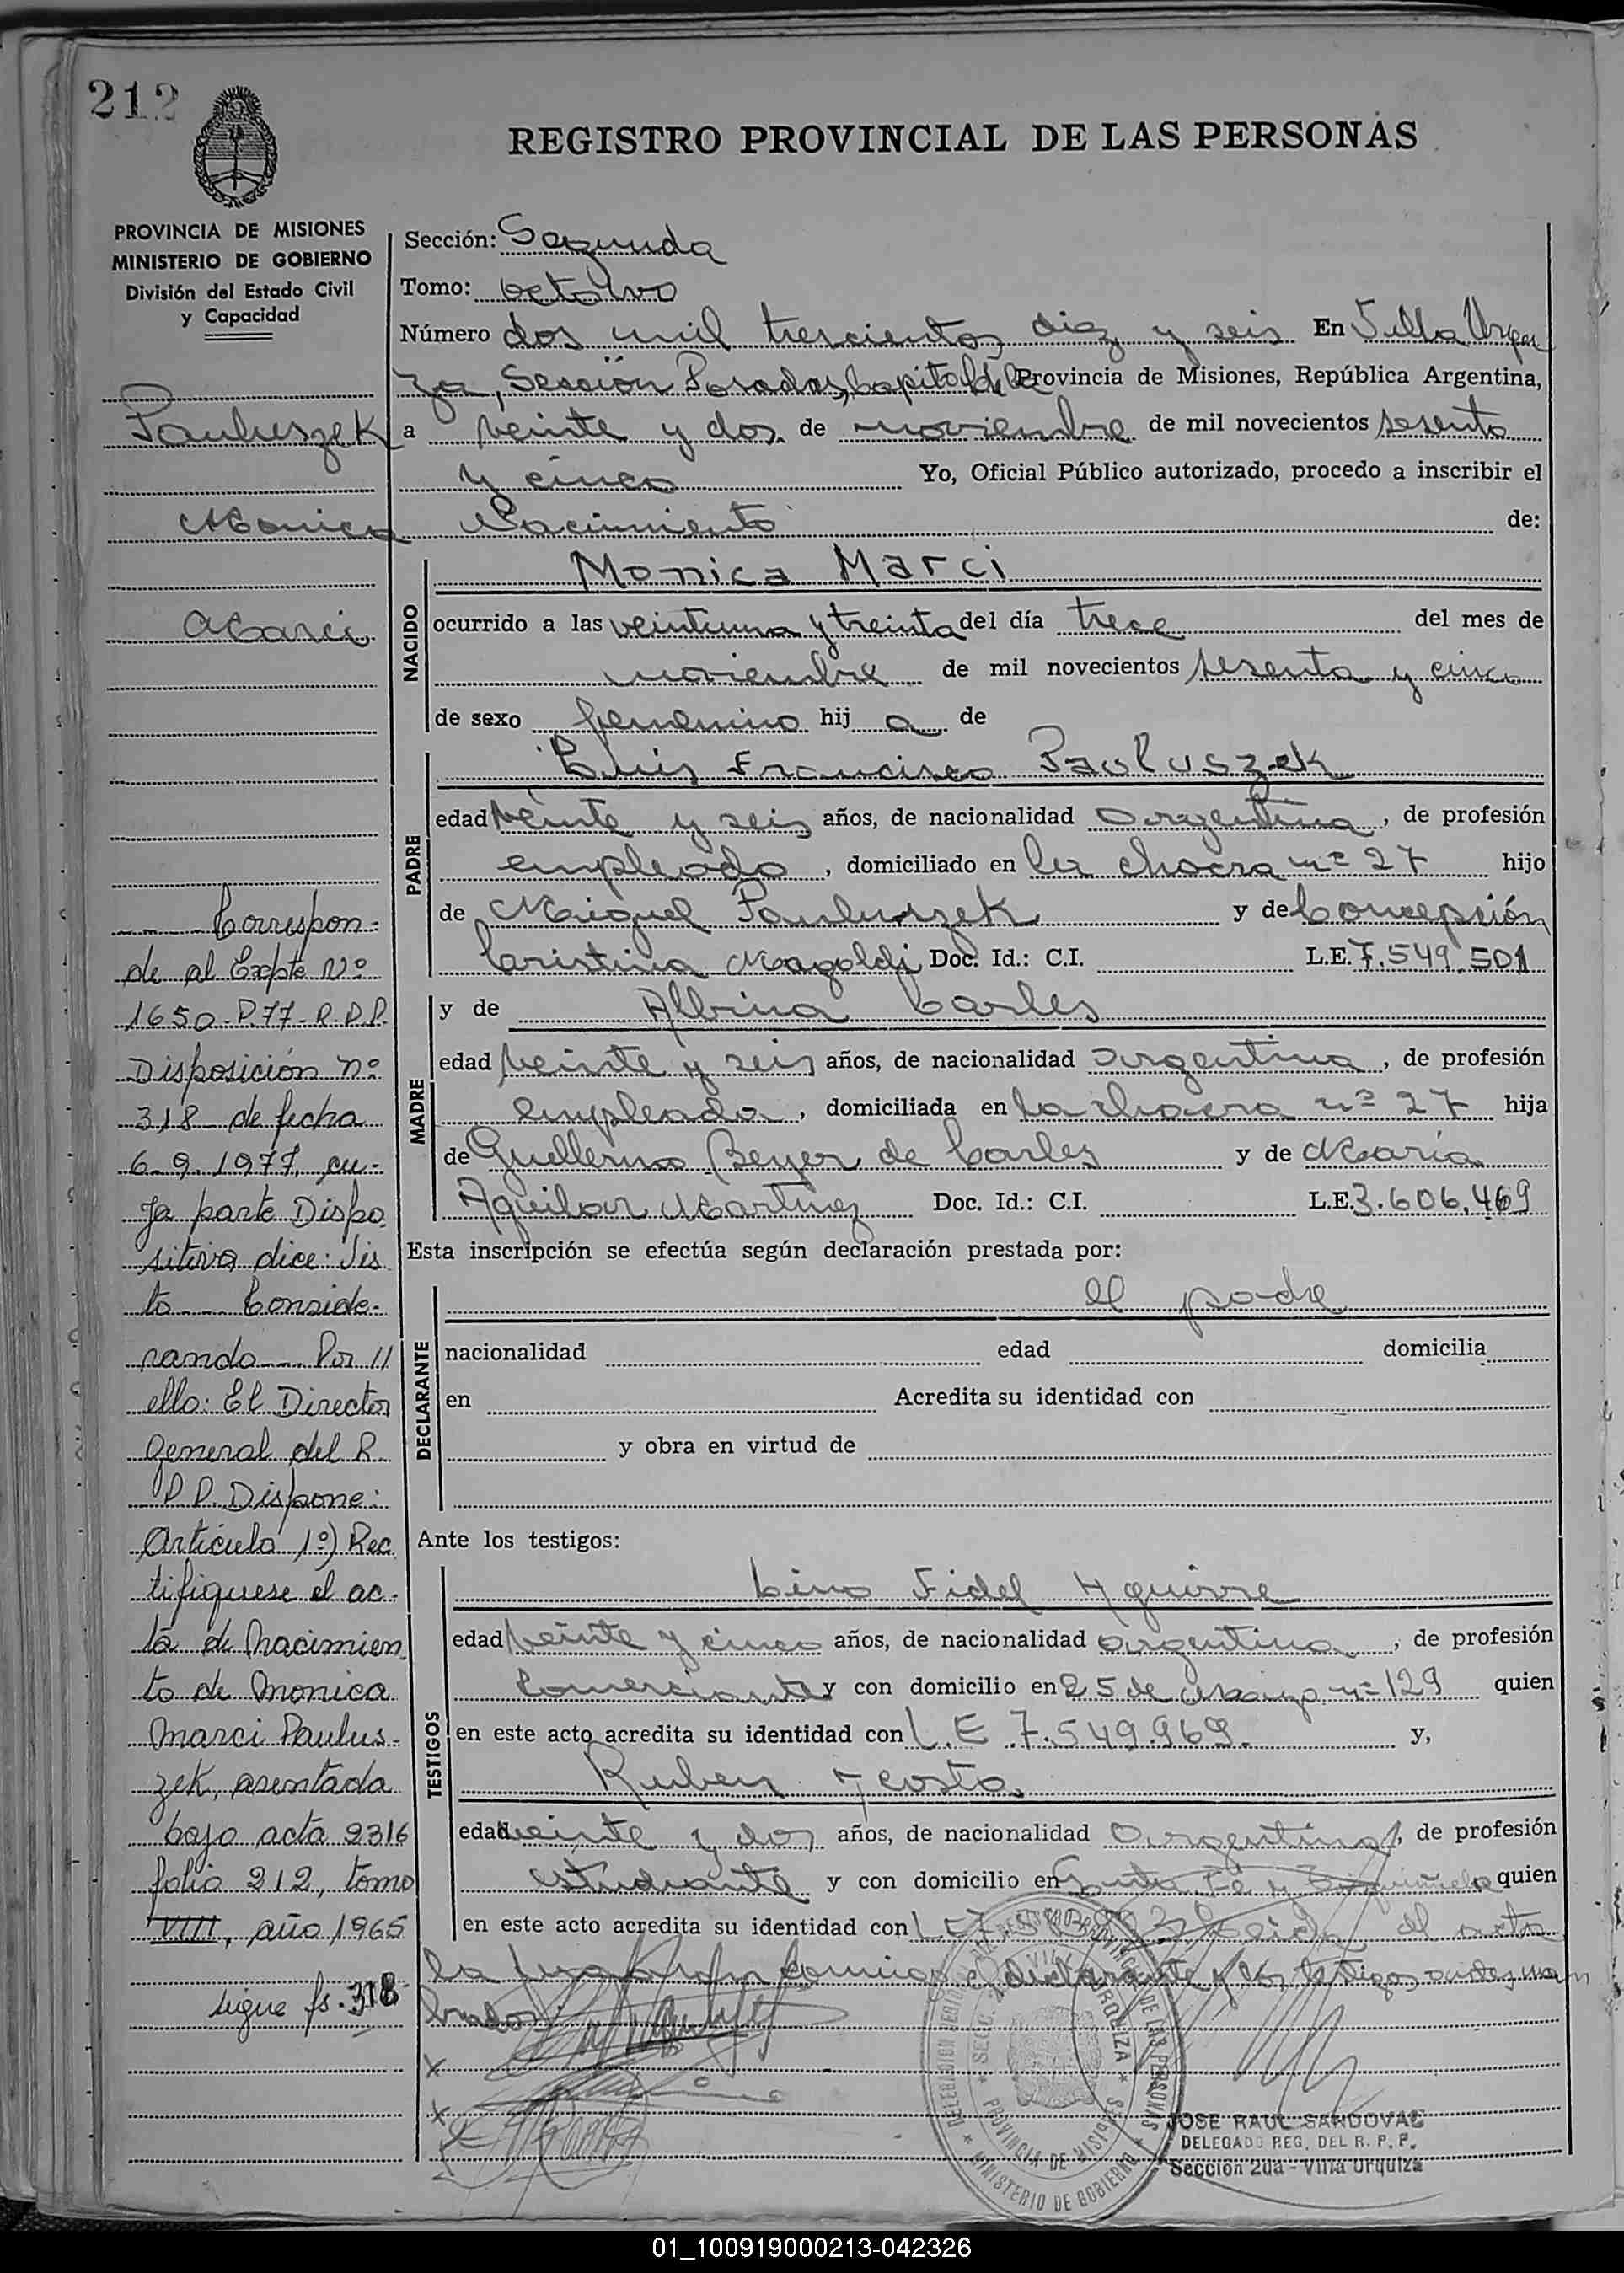 212
REGISTRO PROVINCIAL DE LAS PERSONAS
PROVINCIA DE MISIONES
MINISTERIO DE GOBIERNO
División del Estado Civil
y Capacidad
Pauluszek
Monica
Marci
Correspon-
de al Expte Nº
1650-P.77-R.P.P.
Disposición nº
318 de fecha
6-9-1977, cu-
ya parte Dispo
sitiva dice: Vis
to --- Conside-
rando --- Por //
ello: El Director
General del R.
P.P. Dispone:
Artículo 1º) Rec
tifíquese el ac-
ta de Nacimien
to de Monica
Marci Paulus-
zek, asentada
bajo acta 2316
folio 212, tomo
VIII, año 1965
sigue fs. 318
Sección: Segunda
Tomo: octavo
Número dos mil trescientos diez y seis En Villa Urqui
za, Sección Posadas, Capital de la Provincia de Misiones, República Argentina,
a veinte y dos de noviembre de mil novecientos sesenta
y cinco Yo, Oficial Público autorizado, procedo a inscribir el
Nacimiento de:
NACIDO
Monica Marci
ocurrido a las veintiuna y treinta del día trece del mes de
noviembre de mil novecientos sesenta y cinco
de sexo femenino hij a de
PADRE
Luis Francisco Pauluszek
edad veinte y seis años, de nacionalidad argentina, de profesión
empleado, domiciliado en la chacra nº 27 hijo
de Miguel Pauluszek y de Concepción
Cristina Magoldi Doc. Id.: C.I. L.E. 7.549.501
MADRE
y de Albina Carles
edad veinte y seis años, de nacionalidad argentina, de profesión
empleada, domiciliada en la chacra nº 27 hija
de Guillermo Beyer de Carles y de María
Aguilar Martinez Doc. Id.: C.I. L.E. 3.606.469
Esta inscripción se efectúa según declaración prestada por:
DECLARANTE
el padre
nacionalidad edad domicilia
en Acredita su identidad con
y obra en virtud de
Ante los testigos:
TESTIGOS
Lino Fidel Aguirre
edad veinte y cinco años, de nacionalidad argentina, de profesión
Comerciante y con domicilio en 25 de Mayo nº 129 quien
en este acto acredita su identidad con L.E 7.549.969. y,
Ruben Acosta
edad veinte y dos años, de nacionalidad argentina, de profesión
estudiante y con domicilio en Santa Fé y quien
en este acto acredita su identidad con L.E. Leida el acta
la conmigo el declarante y los testigos antes nom
brados
JOSE RAUL SANDOVAL
DELEGADO REG. DEL R. P. P.
Sección 2da - Villa Urquiza
SECC. 2 VILLA URQUIZA
PROVINCIA DE MISIONES
MINISTERIO DE GOBIERNO
01_100919000213-042326